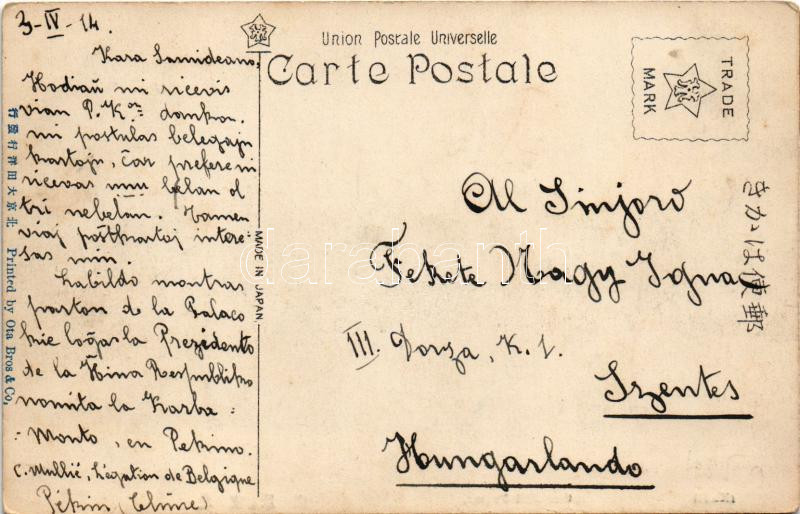 3-IV-14.
Kara Samideano,
Hodiaŭ mi ricevis
vian P.K.on dankon.
mi postulas belegajn
kartojn, ĉar prefere mi
ricevas unu belan ol
tri nebelan. Tamen
viaj poŝtkartoj intere-
sas min.
La bildo montras
parton de la Palaco
kie loĝas la Prezidento
de la Ĥina Respubliko
nomita la Karba-
Monto, en Pekino.
C. Mullié, Légation de Belgique
Pékin (Chine)
行發行洋田太京北 Printed by Ota Bros & Co,
MADE IN JAPAN.
Union Postale Universelle
Carte Postale
TRADE
MARK
きかは便郵
Al Sinjoro
Fekete Nagy Ignac
III. K. 1.
Szentes
Hungarlando
darabanth